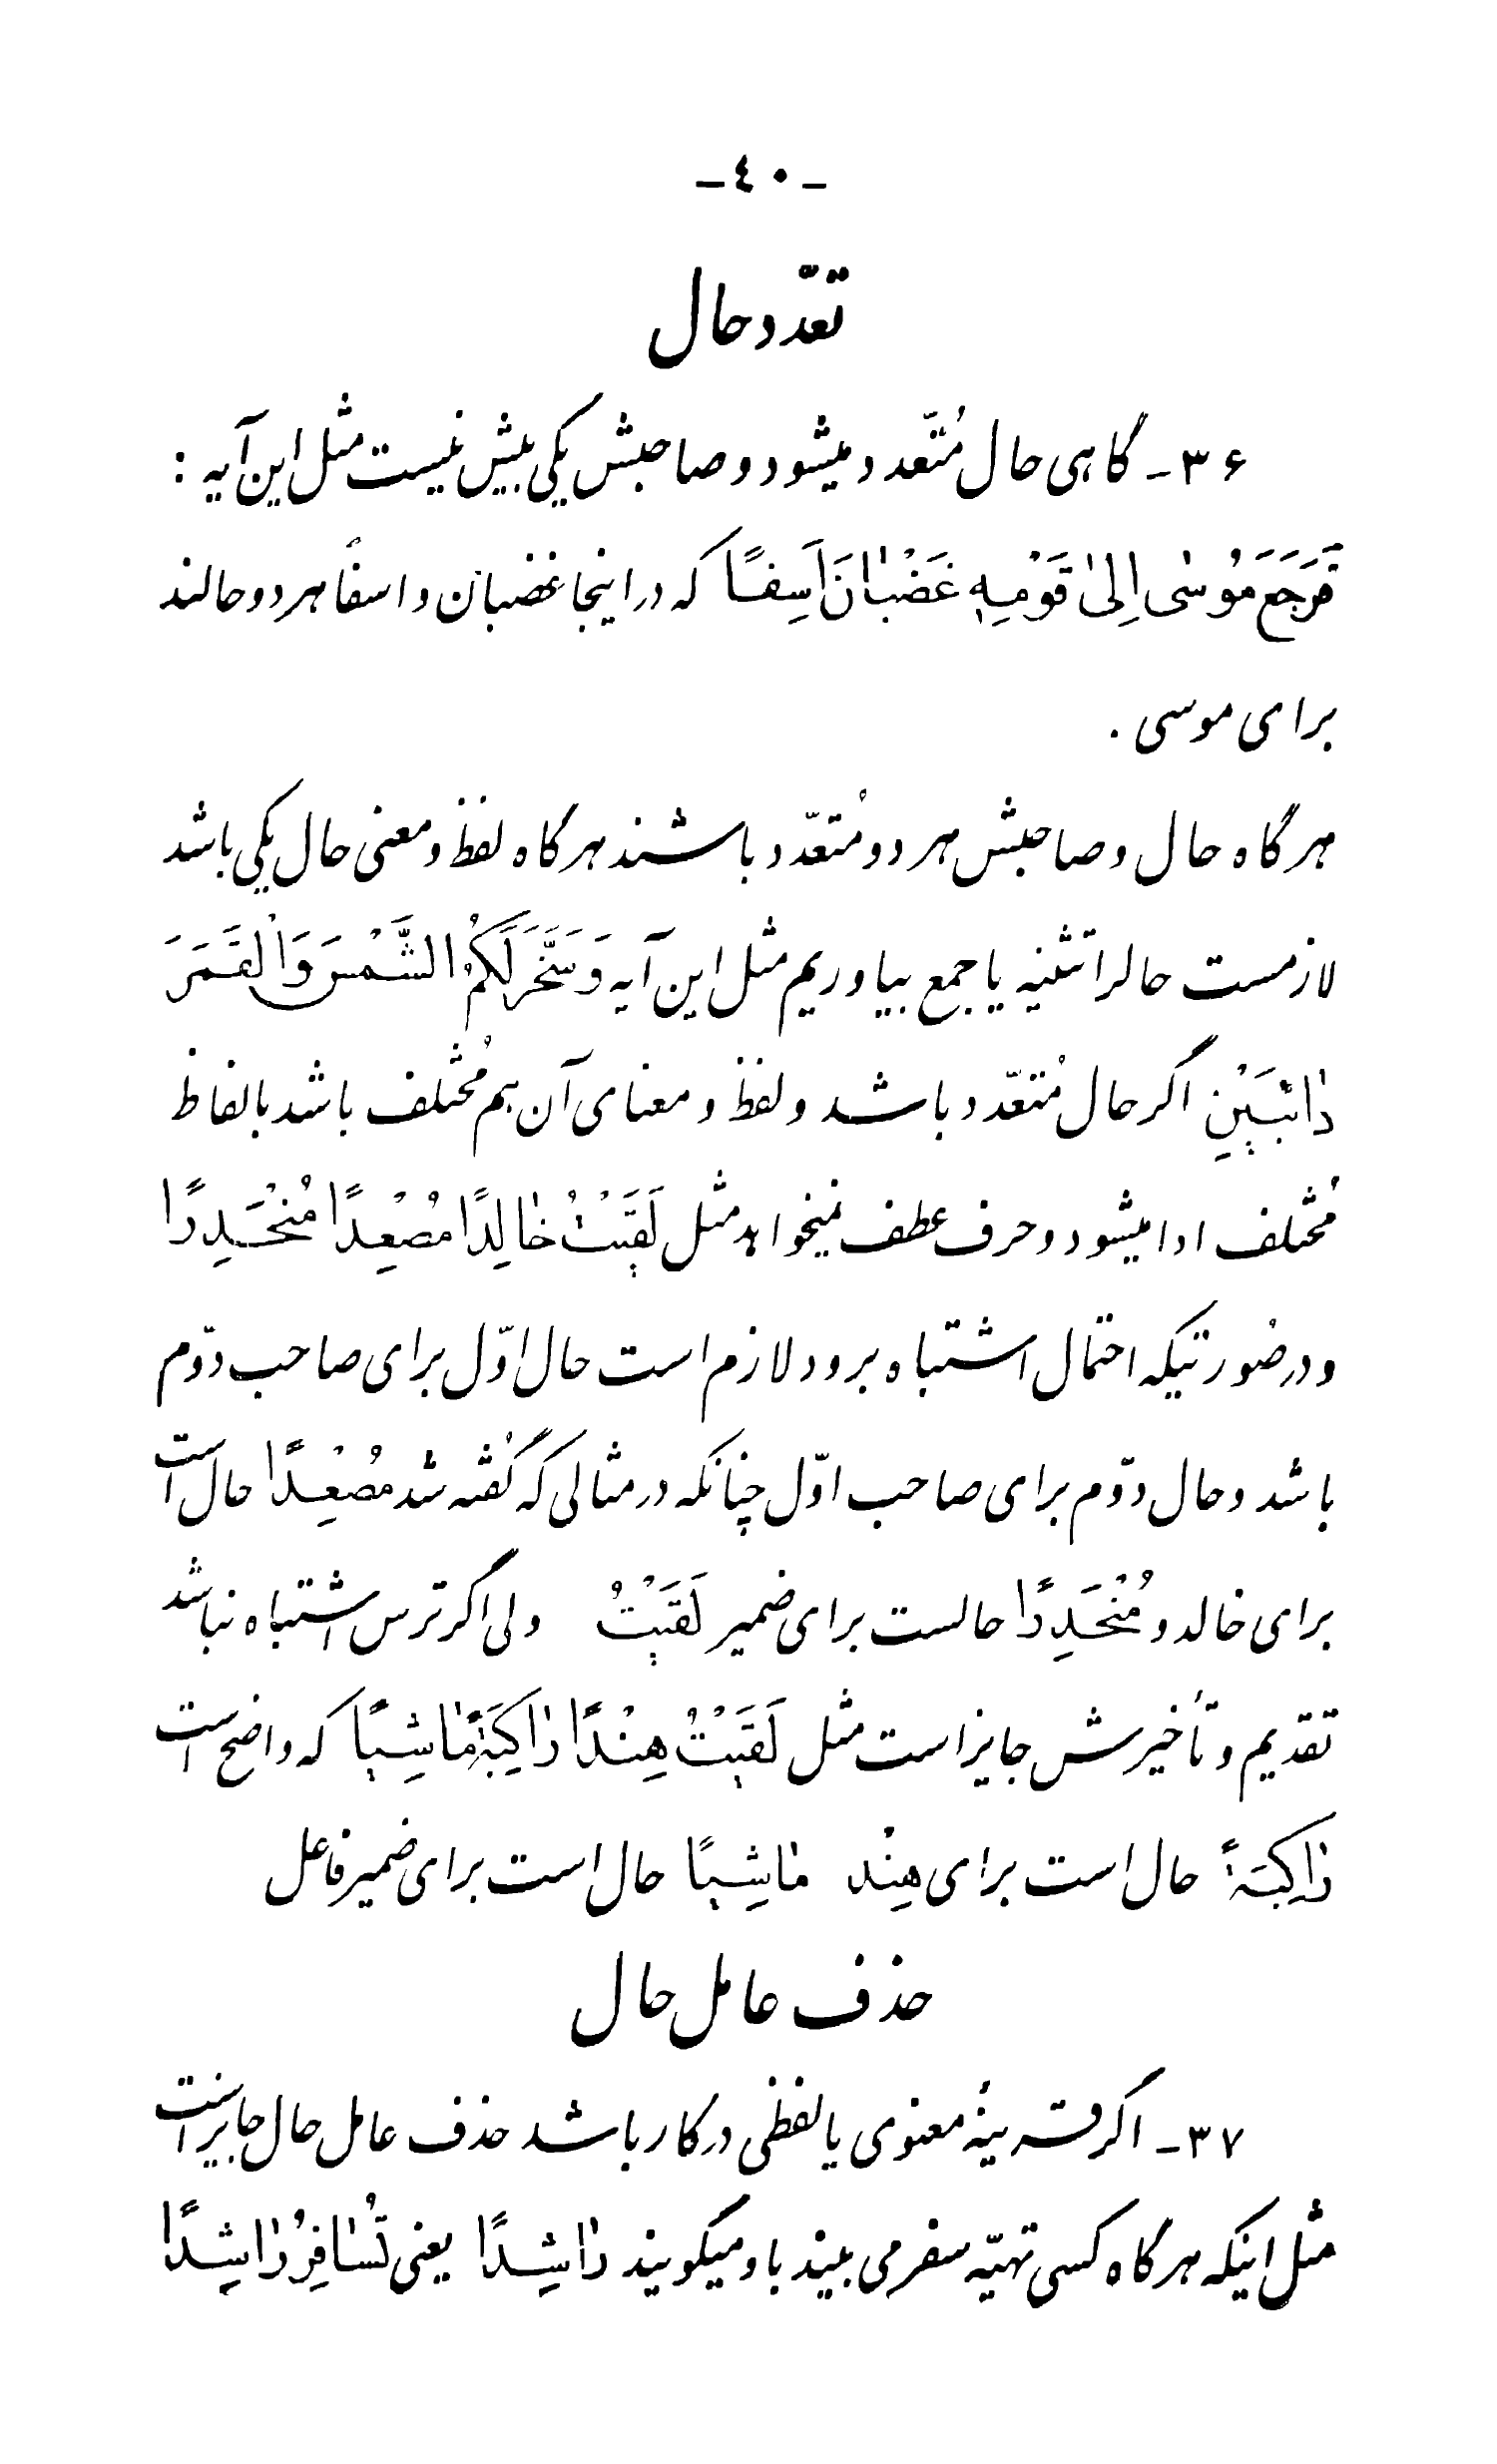 -٤٠-
تعدّد حال
۳۶- گاهی حال مُتعّدد میشود و صاحبش یکی بیش نیست مثل این آیه :
فَرَجَعَ مُوسٰى اِلىٰ قَوْمِهٖ غَضْبٰانَ اَسِفًا که در اینجا غضبان و اسفاً هر دو حالند
برای موسی .
هر گاه حال و صاحبش هر دو مُتعدّد باشند هر گاه لفظ و معنی حال یکی باشد
لازمست حالرا تثنیه یا جمع بیاوریم مثل این آیه وَ سَخَّرَ لَكُمْ الشَّمْسَ وَالْقَمَرَ
دٰائبَيْنِ اگر حال مُتعدّد باشد و لفظ و معنای آن هم مُختلف باشد بالفاظ
مُختلف ادا میشود و حرف عطف نمیخواهد مثل لَقَيْتُ خٰالِدًا مُصْعِدًا مُنْحَدِرًا
و در صُورتیکه احتمال اشتباه برود لازم است حال اوّل برای صاحب دوّم
باشد و حال دوّم برای صاحب اوّل چنانکه در مثالی که گُفته شد مُصْعِدًا حال است
برای خالد و مُنْحَدِرًا حالست برای ضمیر لَقَيْتُ ولی اگر ترس اشتباه نباشد
تقدیم و تأخیرش جایز است مثل لَقَيْتُ هِنْدًا رٰاكِبَةً مٰاشِيًا که واضح است
رٰاكِبَةً حال است برای هِنْد مٰاشِيًا حال است برای ضمیر فاعل
حذف عامل حال
۳۷- اگر قرینهٔ معنوی یا لفظی در کار باشد حذف عامل حال جایز است
مثل اینکه هر گاه کسی تهیّه سفر می بیند باو میگویند رٰاشِدًا یعنی تُسٰافِرُ رٰاشِدًا